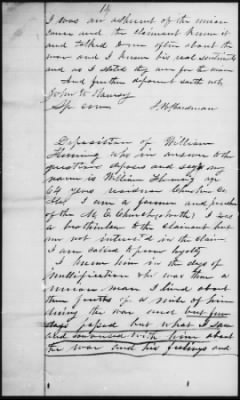 14
I was an adherent of the union
cause and the claimant knew it
and talked to me often about the
war and I knew his real sentiments
and as I stated they are for the union
And further deponent saith not
John W Ramsey
Sp com J. H. Hardman
Deposition of William
Fleming who in answer to the
question deposes and says my
name is William Fleming age
64 years residence Cherokee Co
Ala I am a farmer and preacher
of the M. E. Church (North) I was
a brotherinlaw to the claimant but
am not interest'd in the claim
I am called to prove loyalty
I knew him in the days of
nullification who was then a
union man I lived about
three fourths of a mile of him
during the war and but few
days passed but what I saw
and conversed with him about
the war and his feelings and